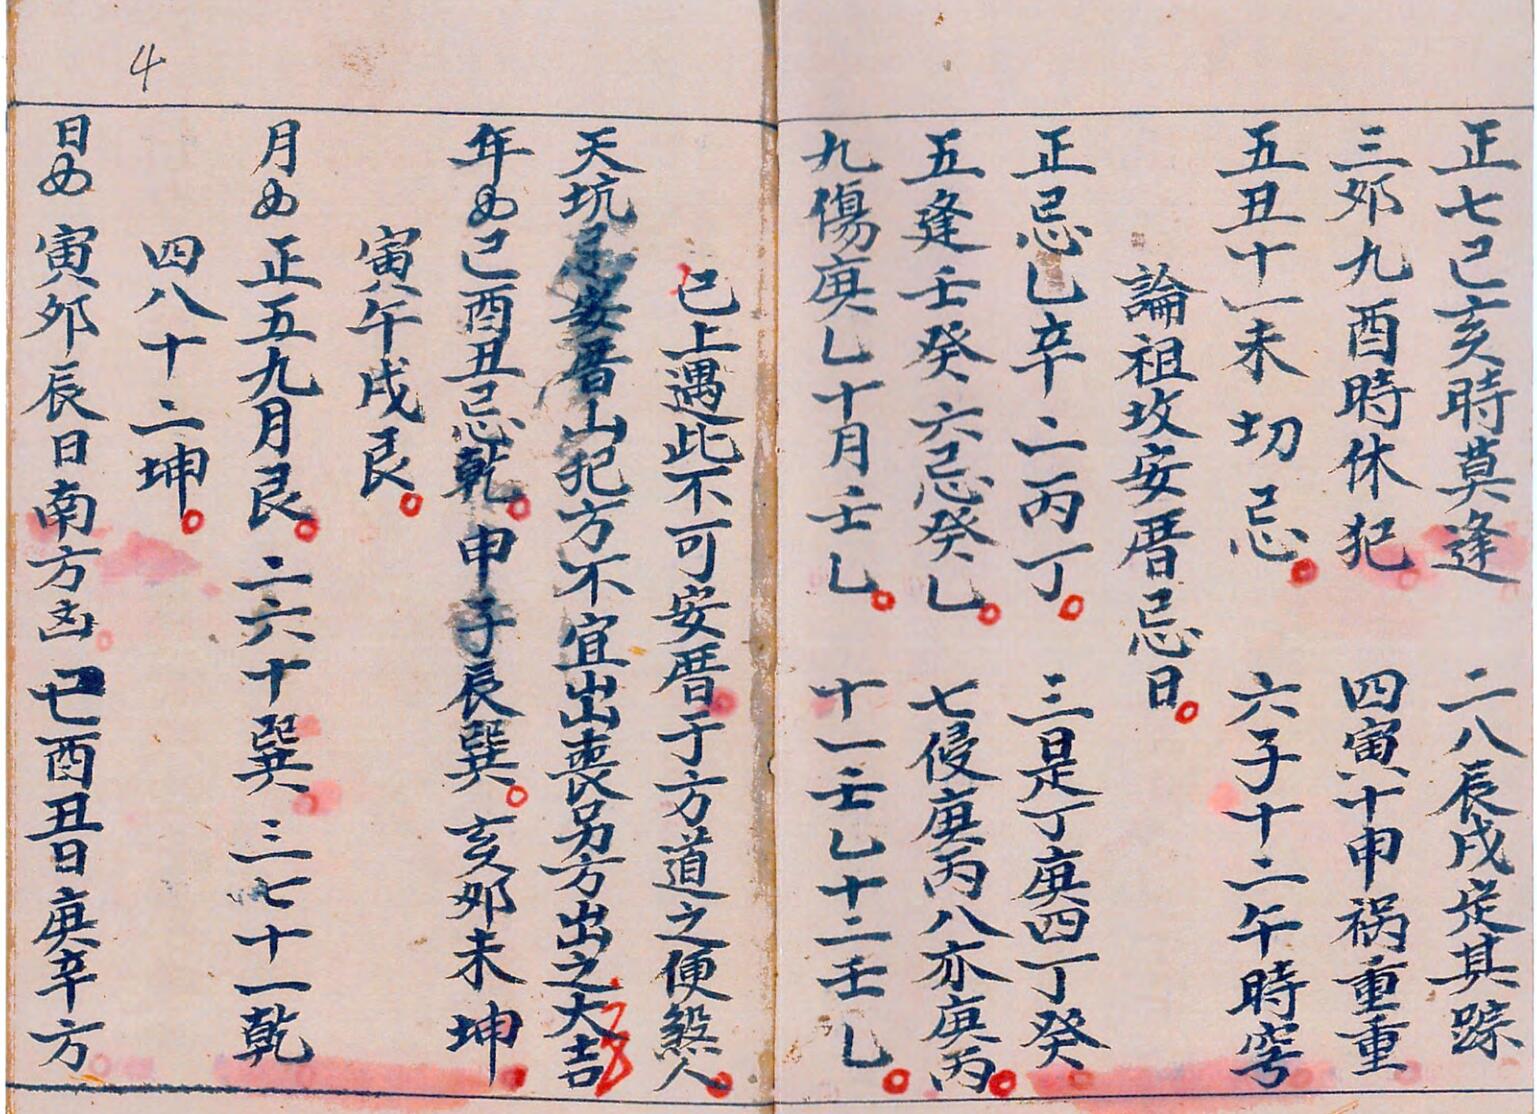 正七巳亥時莫逢 二八辰戌定其踪
三卯九酉時休犯 四寅十申祸重重
五丑十一未切忌 六子十二午時穹
論祖坟安厝忌日
正忌乙辛二丙丁 三是丁庚四丁癸
五逢壬癸六忌癸乙 七侵庚丙八亦庚丙
九傷庚乙十月壬乙 十一壬乙十二壬乙
已上遇此不可安厝于方道之便煞人
天坑忌安厝山犯方不宜出喪另方出之大吉
年如巳酉丑忌乾 申子辰巽 亥卯未坤
寅午戌艮
月如正五九月艮 二六十巽 三七十一乾
四八十二坤
日如寅卯辰日南方凶 巳酉丑日庚辛方
4
78